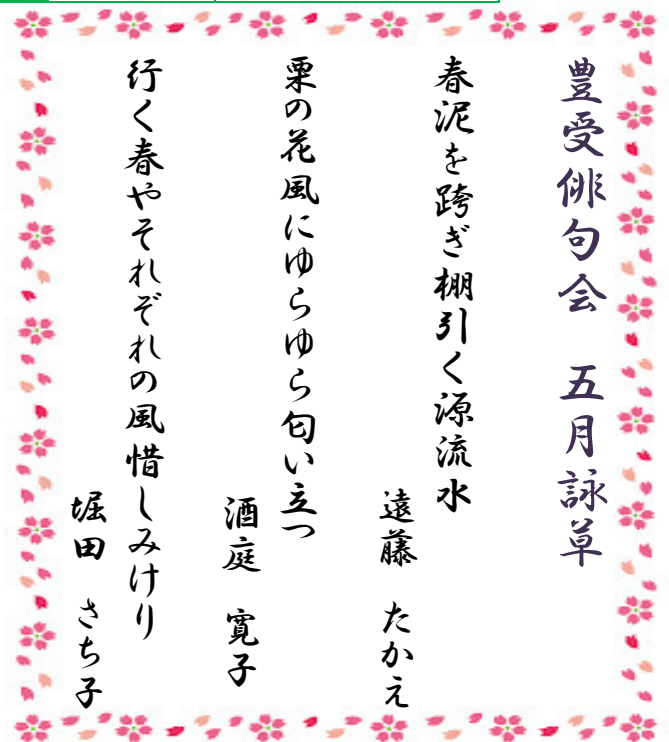 豊受俳句会　五月詠草
春泥を跨ぎ棚引く源流水
遠藤　たかえ
栗の花風にゆらゆら匂い立つ
酒庭　寛子
行く春やそれぞれの風惜しみけり
堀田　さち子